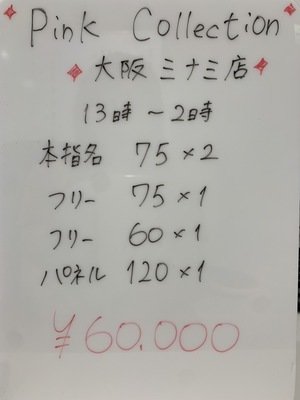 Pink Collection
大阪ミナミ店
13時〜2時
本指名 75×2
フリー 75×1
フリー 60×1
パネル 120×1
¥60.000